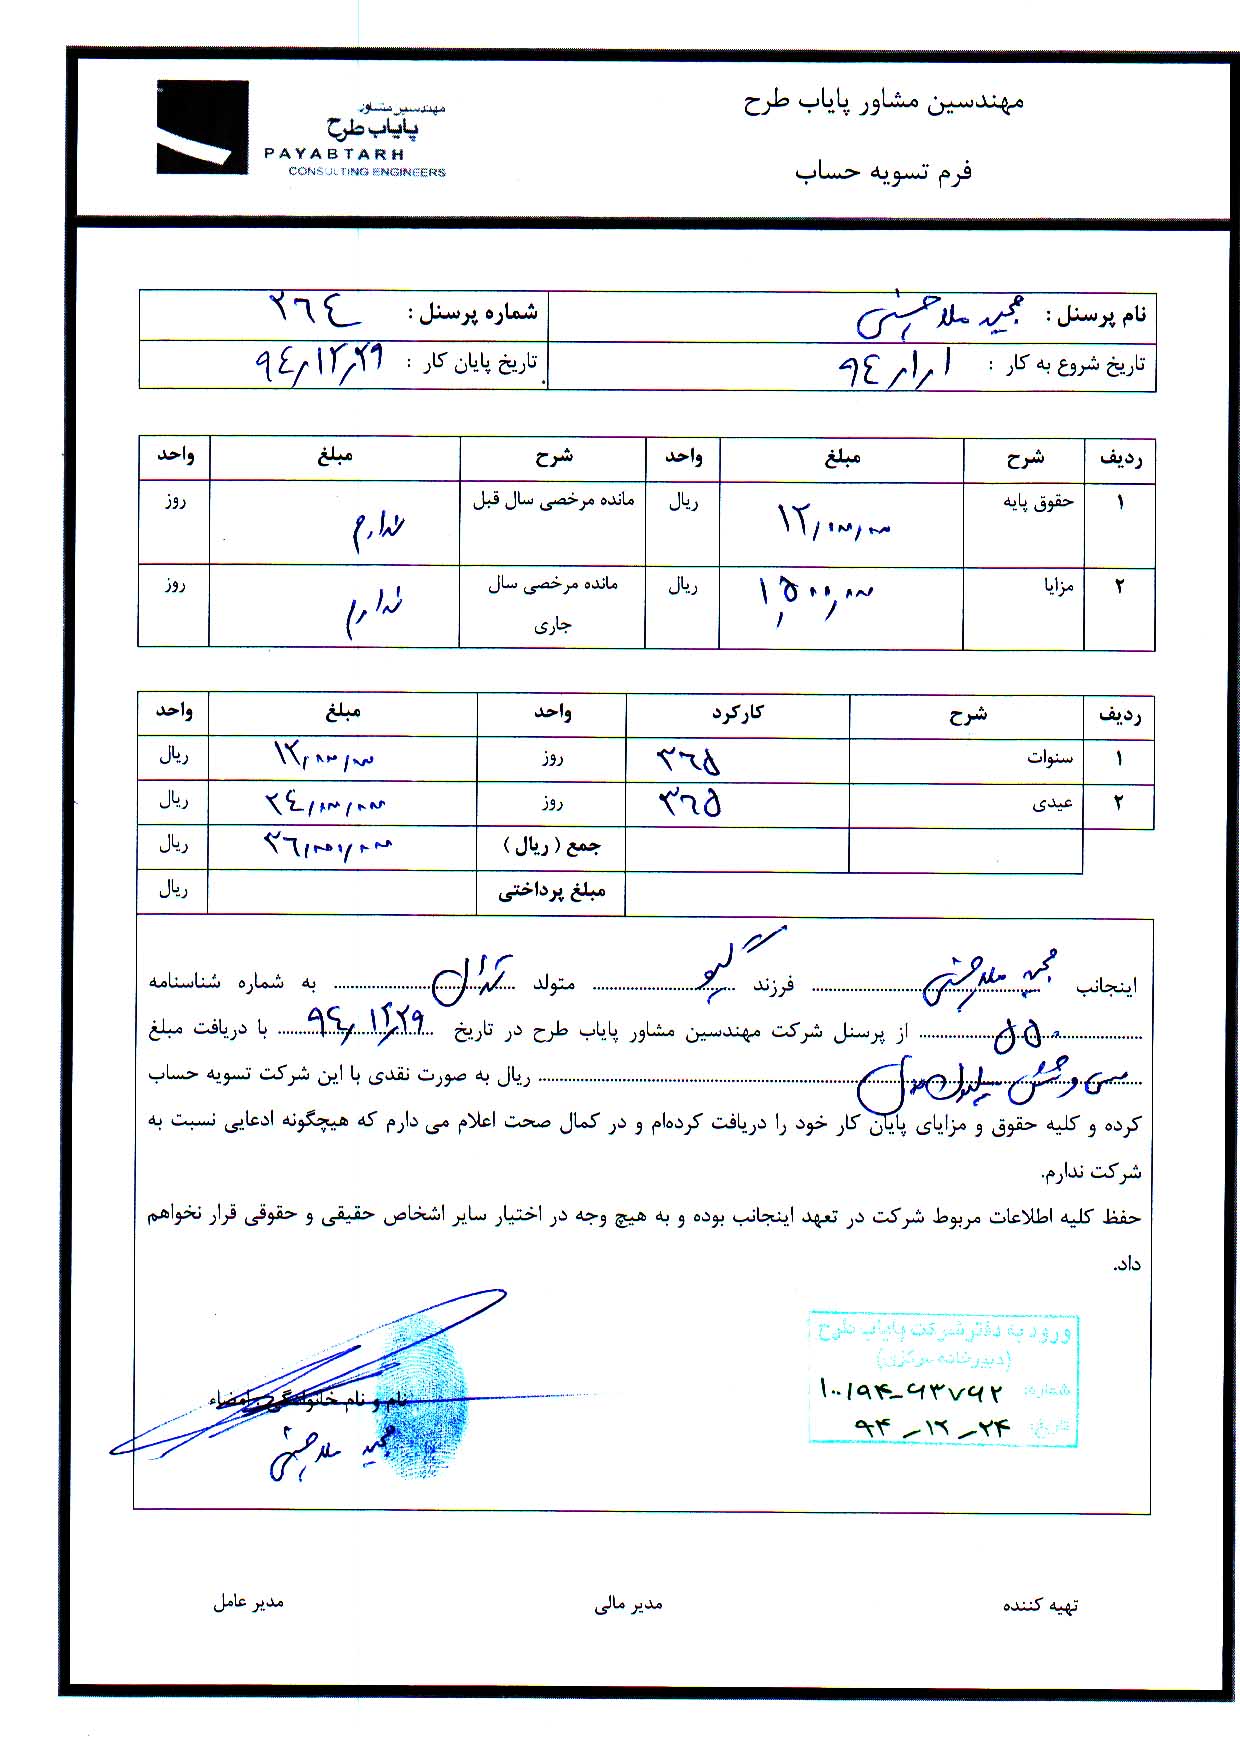 مهندسین مشاور پایاب طرح
مهندسین مشاور
پایاب طرح
PAYABTARH
CONSULTING ENGINEERS
فرم تسویه حساب
نام پرسنل : مجید ملاحسنی شماره پرسنل : ۲٦٤
تاریخ شروع به کار : ۹٤/۱/۱ تاریخ پایان کار : ۹٤/۱۲/۲۹
ردیف شرح مبلغ واحد شرح مبلغ واحد
۱ حقوق پایه ۱۲/۰۰۰/۰۰۰ ریال مانده مرخصی سال قبل ندارم روز
۲ مزایا ۱٬۵۰۰٬۰۰۰ ریال مانده مرخصی سال جاری ندارم روز
ردیف شرح کارکرد واحد مبلغ واحد
۱ سنوات ۳٦۵ روز ۱۲/۰۰۰/۰۰۰ ریال
۲ عیدی ۳٦۵ روز ۲٤/۰۰۰/۰۰۰ ریال
جمع ( ریال ) ۳٦/۰۰۰/۰۰۰ ریال
مبلغ پرداختی ریال
اینجانب مجید ملاحسنی فرزند گیو متولد تهران به شماره شناسنامه
۵۵۰ از پرسنل شرکت مهندسین مشاور پایاب طرح در تاریخ ۹٤/۱۲/۲۹ با دریافت مبلغ
سی و شش میلیون ریال ریال به صورت نقدی با این شرکت تسویه حساب
کرده و کلیه حقوق و مزایای پایان کار خود را دریافت کرده‌ام و در کمال صحت اعلام می دارم که هیچگونه ادعایی نسبت به
شرکت ندارم.
حفظ کلیه اطلاعات مربوط شرکت در تعهد اینجانب بوده و به هیچ وجه در اختیار سایر اشخاص حقیقی و حقوقی قرار نخواهم
داد.
ورود به دفتر شرکت پایاب طرح
(دبیرخانه مرکزی)
شماره: ۱۰۰/۹۴-۹۳۷۹۲
تاریخ: ۹۴-۱۲-۲۴
نام و نام خانوادگی : امضاء
مجید ملاحسنی
تهیه کننده مدیر مالی مدیر عامل